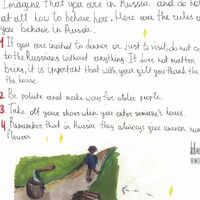 Imagine that you are in Russia and do no
at all how to behave here. Here are the rules o
you behave in Russia.
1 If you are invited to dinner or just to visit, do not co
to the Russians without anything. It does not matter
bring, it is important that with your gift you thank the
the house.
2 Be polite and make way for older people.
3. Take off your shoes when you enter someone's house.
4. Remember that in Russia they always give uneven nu
flowers